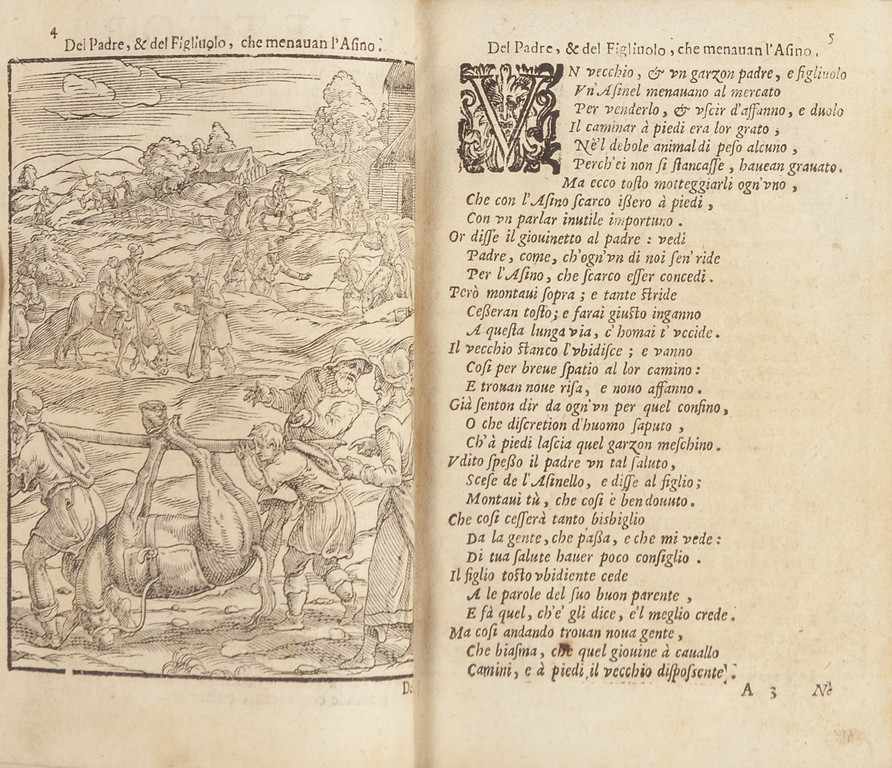 4
Del Padre, & del Figliuolo, che menauan l'Asino.
D
5
Del Padre, & del Figliuolo, che menauan l'Asino.
VN vecchio, & vn garzon padre, e figliuolo
Vn'Asinel menauano al mercato
Per venderlo, & vscir d'affanno, e duolo
Il caminar à piedi era lor grato;
Nè'l debole animal di peso alcuno,
Perch'ei non si stancasse, hauean grauato.
Ma ecco tosto motteggiarli ogn'vno,
Che con l'Asino scarco ißero à piedi,
Con vn parlar inutile importuno.
Or disse il giouinetto al padre: vedi
Padre, come, ch'ogn'vn di noi sen' ride
Per l'Asino, che scarco esser concedi.
Però montaui sopra; e tante stride
Ceßeran tosto; e farai giusto inganno
A questa lunga via, c'homai t'vccide.
Il vecchio stanco l'vbidisce; e vanno
Cosi per breue spatio al lor camino:
E trouan noue risa, e nouo affanno.
Già senton dir da ogn'vn per quel confino,
O che discretion d'huomo saputo,
Ch'à piedi lascia quel garzon meschino.
Vdito speßo il padre vn tal saluto,
Scese de l'Asinello, e disse al figlio;
Montaui tù, che cosi è ben douuto.
Che cosi cesserà tanto bisbiglio
Da la gente, che paßa, e che mi vede:
Di tua salute hauer poco consiglio.
Il figlio tosto vbidiente cede
A le parole del suo buon parente,
E fà quel, ch'e' gli dice, e'l meglio crede.
Ma cosi andando trouan noua gente,
Che biasma, che quel giouine à cauallo
Camini, e à piedi il vecchio dispossente.
A 3 Nè